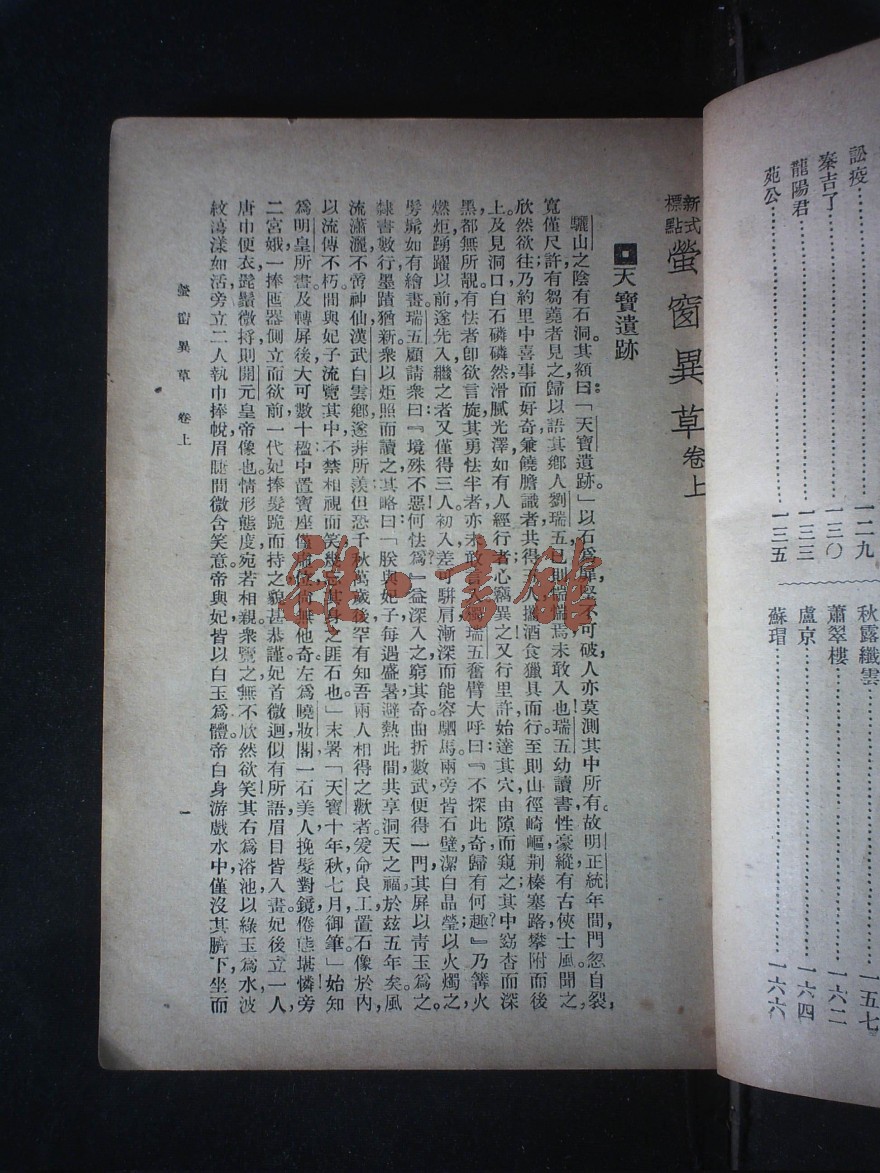 訟疫⋯⋯一二九
秦吉了⋯⋯一三〇
龍陽君⋯⋯一三三
苑公⋯⋯一三五
秋露纖雲⋯⋯一五七
蕭翠樓⋯⋯一六二
盧京⋯⋯一六四
蘇瑁⋯⋯一六六
新式標點 螢窗異草 卷上
天寶遺跡
驪山之陰有石洞。其額曰:「天寶遺跡。」以石爲扉，堅不可破，人亦莫測其中所有。故明正統年間，門忽自裂，
寬僅尺許，有芻蕘者見之，歸以語其鄉人劉瑞五，
焉未敢入也。瑞五幼讀書，性豪縱，有古俠士風。聞之，
欣然欲往，乃約里中喜事而好奇兼饒膽識者，共得
攜酒食獵具而行。至則山徑崎嶇，荆榛塞路，攀附而後
上。及見洞口，白石磷磷然，滑膩光澤，如有人經行者，心竊異之。又行里許，始達其穴，由隙而窺之，其中窈杳而深
黑，都無所覩。有怯者卽欲言旋，其勇怯半者亦未敢
瑞五奮臂大呼曰:『不探此奇，歸有何趣?』乃篝火
燃炬，踴躍以前，遂先入。繼之者又僅得三人。初入差
駢肩，漸深而能容駟馬，兩旁皆石壁，潔白晶瑩，以火燭之，
髣髴如有繪畫。瑞五顧請衆曰:『境殊不惡，何怯爲!』益深入之，窮其奇，曲折數武，便得一門，其屏以靑玉爲之。
隸書數行，墨蹟猶新。衆以炬照而讀之，其略曰:「朕與妃子每遇盛暑，避熱此間，共享洞天之福，於茲五年矣。風
流瀟灑，不啻神仙，漢武白雲鄉，遂非所羨。但恐千秋萬歲後，罕有知吾兩人相得之歡者，爰命良工，置石像於內，
以流傳不朽。間與妃子流覽其中，不禁相視而笑，幾忘其身之匪石也。」末署「天寶十年秋七月御筆」始知
爲明皇所書。及轉屏後，大可數十楹，中置寶座
尚無他奇。左爲曉妝閣，一石美人挽髮對鏡，倦態堪憐，旁
二宮娥，一捧匜器，側立而欲前，一代妃捧髮，跪而持之，貌甚恭謹。妃首微迴，似有所語，眉目皆入畫。妃後立一人，
唐巾便衣，髭鬚微捋，則開元皇帝像也。情形態度，宛若相親，衆覽之，無不欣然欲笑。其右爲浴池，以綠玉爲水，波
紋蕩漾如活，旁立二人，執巾捧帨，眉睫間微含笑意。帝與妃皆以白玉爲體，帝白身游戲水中，僅沒其臍下，坐而
螢窗異草 卷上
一
雜·書館